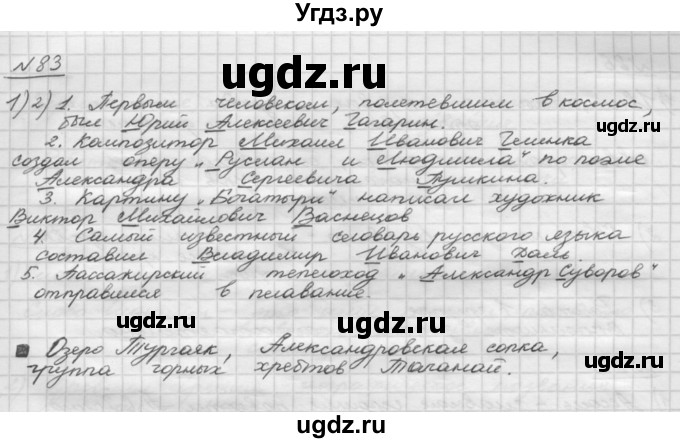 Угдз.ру
№83
ugdz.ru
1) 2) 1. Первым человеком, полетевшим в космос,
был Юрий Алексеевич Гагарин.
2. Композитор Михаил Иванович Глинка
создал оперу „Руслан и Людмила“ по поэме
Александра Сергеевича Пушкина.
3. Картину „Богатыри“ написал художник
Виктор Михайлович Васнецов
4. Самый известный словарь русского языка
составил Владимир Иванович Даль.
5. Пассажирский теплоход „Александр Суворов“
отправился в плавание.
ugdz.ru ugdz.ru
Озеро Тургояк, Александровская сопка,
группа горных хребтов Таганай.
ugdz.ru